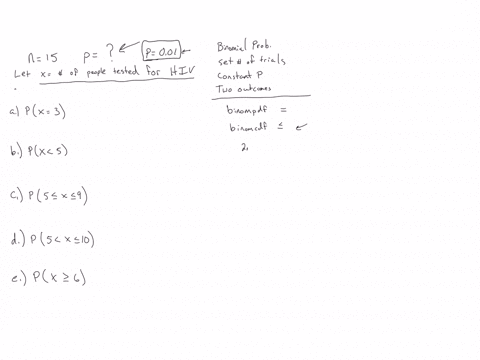 n=15 p= ? P=0.01
Let x= # of people tested for HIV
a.) P(x=3)
b.) P(x<5)
c.) P(5≤x≤9)
d.) P(5<x≤10)
e.) P(x≥6)
Binomial Prob.
set # of trials
Constant P
Two outcomes
binompdf =
binomcdf ≤
2,